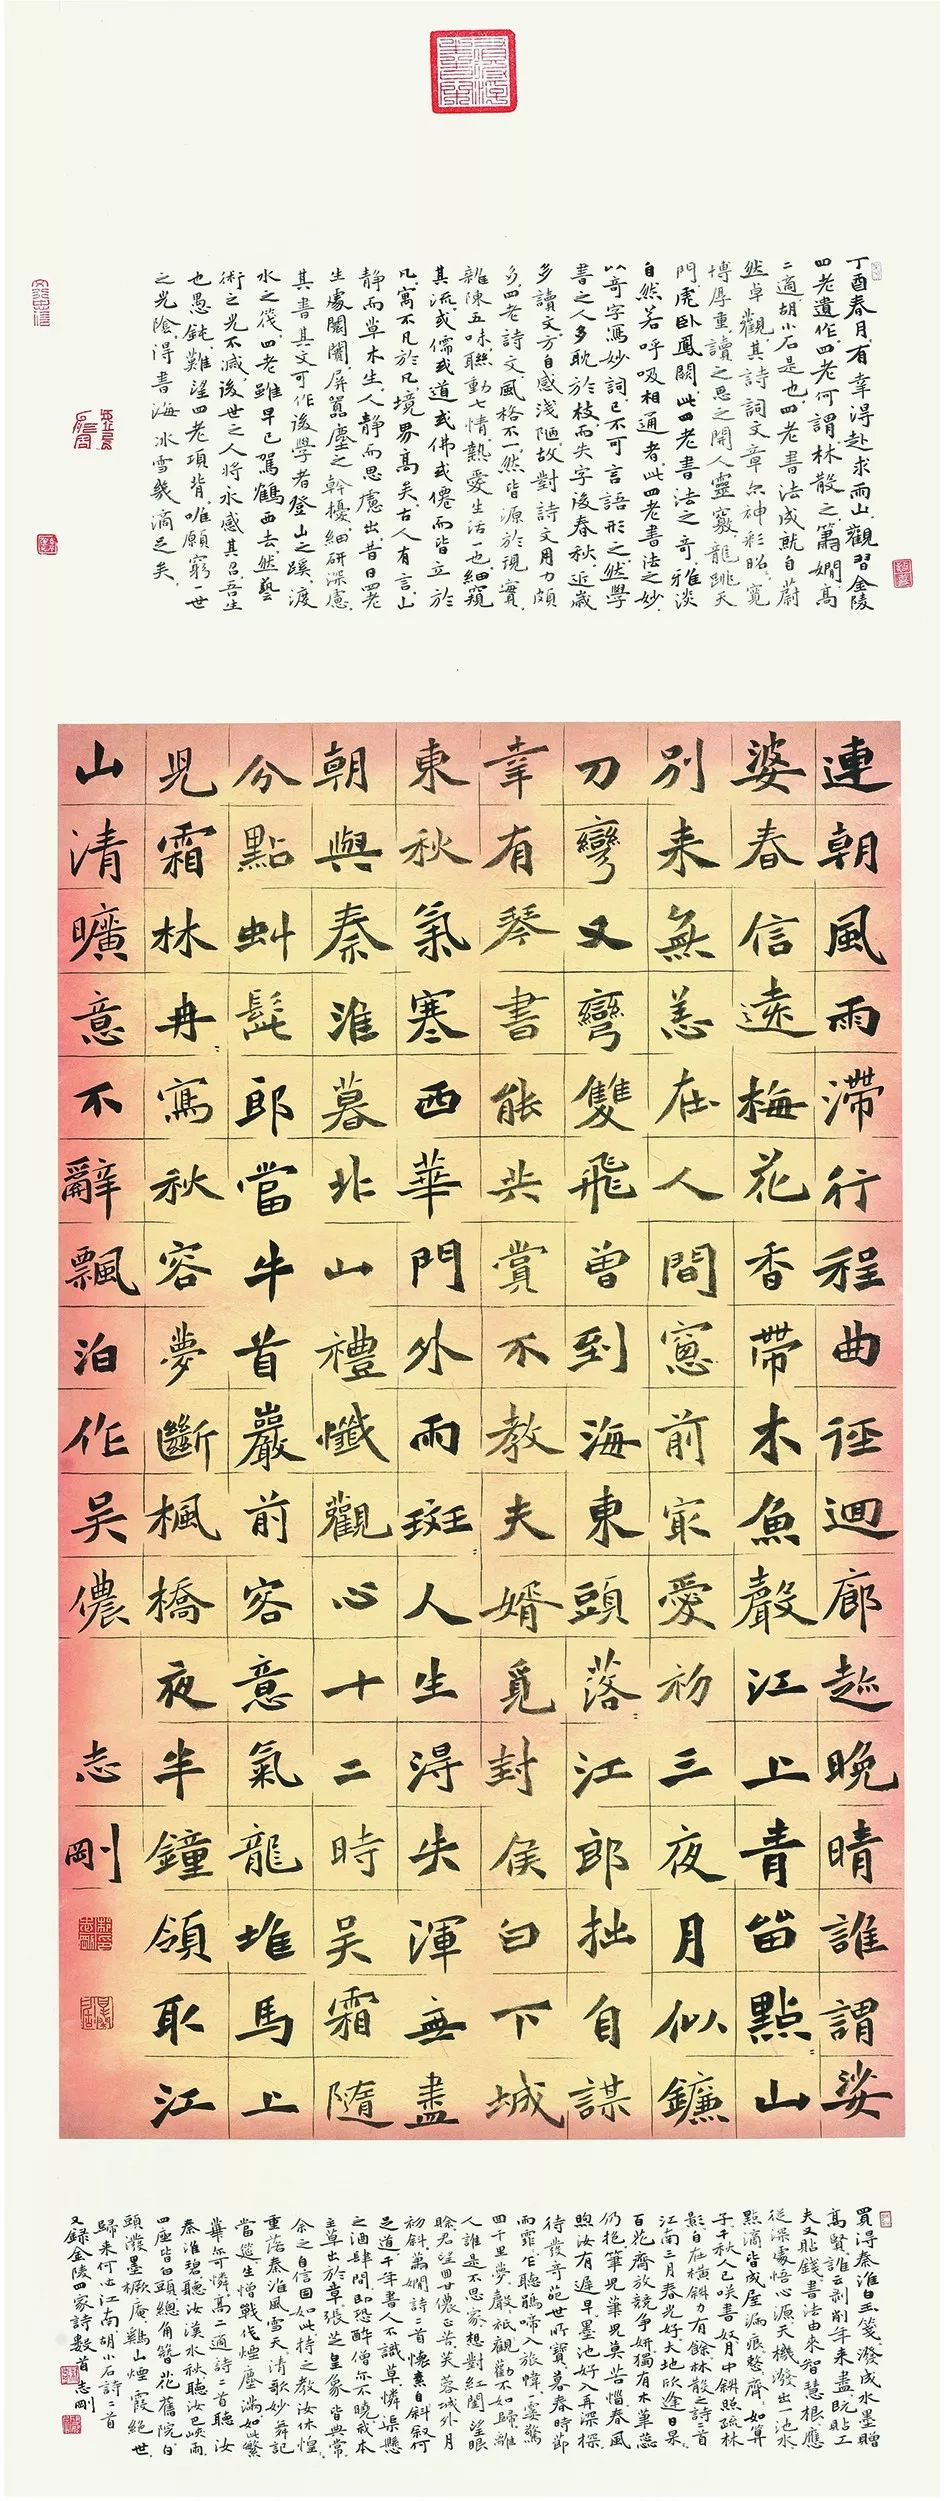 丁酉春月有幸得赴求雨山觀習金陵
四老遺作四老何謂林散之蕭嫻高
二適胡小石是也四老書法成就自蔚
然卓觀其詩詞文章亦神彩昭寬
博厚重讀之思之開人靈竅龍跳天
門虎臥鳳闕此四老書法之奇雅淡
自然若呼吸相通者此四老書法之妙
以奇字馮妙詞已不可言語形之然學
書之人多耽於枝而失字後春秋近歲
多讀文方自感淺陋故對詩文用力頗
多四老詩文風格不一然皆源於現實
雜陳五味聯動七情熱愛生活一也細窺
其流或儒或道或佛或僊而皆立於
凡寓不凡於凡境界高矣古人有言山
靜而草木生人靜而思慮出昔日四老
生處闤闠屏囂塵之幹擾細研深慮
其書其文可作後學者登山之蹊渡
水之筏四老雖早已駕鶴西去然藝
術之光不滅後世之人將永感其召吾生
也愚鈍難望四老項背唯願窮一世
之光陰得書海冰雪幾滴足矣
連朝風雨滯行程曲徑迴廊趁晚晴誰謂娑
婆春信遠梅花香帶木魚聲江上青笛點山
別來無恙在人間窗前最愛初三夜月似鐮
刀彎又彎雙飛曾到海東頭落江郎拙自謀
幸有琴書能共賞不教夫婿覓封侯白下城
東秋氣寒西華門外雨斑人生得失渾無盡
朝與秦淮暮北山禮懺觀心十二時吳霜隨
分點虯髭郎當牛首巖前容意氣龍堆馬上
兒霜林冉寫秋容夢斷楓橋夜半鐘領取江
山清曠意不辭飄泊作吳儂
志剛
買得秦淮白玉箋潑成水墨贈
高賢誰云剥削年來盡既貼工
夫又貼錢書法由來智慧根應
從深處悟心源天機潑出一池水
點滴皆成屋漏痕整齊如算
子千秋人已咲書奴月中斜照疏林
影自在橫斜力有餘林散之詩二首
江南三月春光好大地欣逢日杲
百花齊放競爭妍獨有木筆蕊
仍抱筆兒筆兒莫苦惱春風
煦汝有遲早墨池好入再深探
待發奇葩世所寶暮春時節
雨霏乍聽鵑啼入旅幃一霎驚
四千里夢聲秖觀勸不如歸離
人誰是不思家想對紅閨望眼
賒君望四廿儂已苦芙蓉城外月
初斜蕭嫻詩二首懷素自敘何
足道千年書人不識草憐渠懸
之酒肆間即恐醉僧亦不曉我本
主草出於章張芝皇象皆典常
余之自信固如此持之教汝休惶
重落秦淮風雪天清歌妙舞記
當筵生憎戰伐煙塵滿如此繁
華亦可憐高二適詩二首聽汝
秦淮碧聽汝漢水秋聽汝巴峽雨
四座皆白頭總角簪花舊院日
頭潑墨橛庵雞山煙霞絕世
歸來何必江南胡小石詩二首
又録金陵四家詩數首志剛